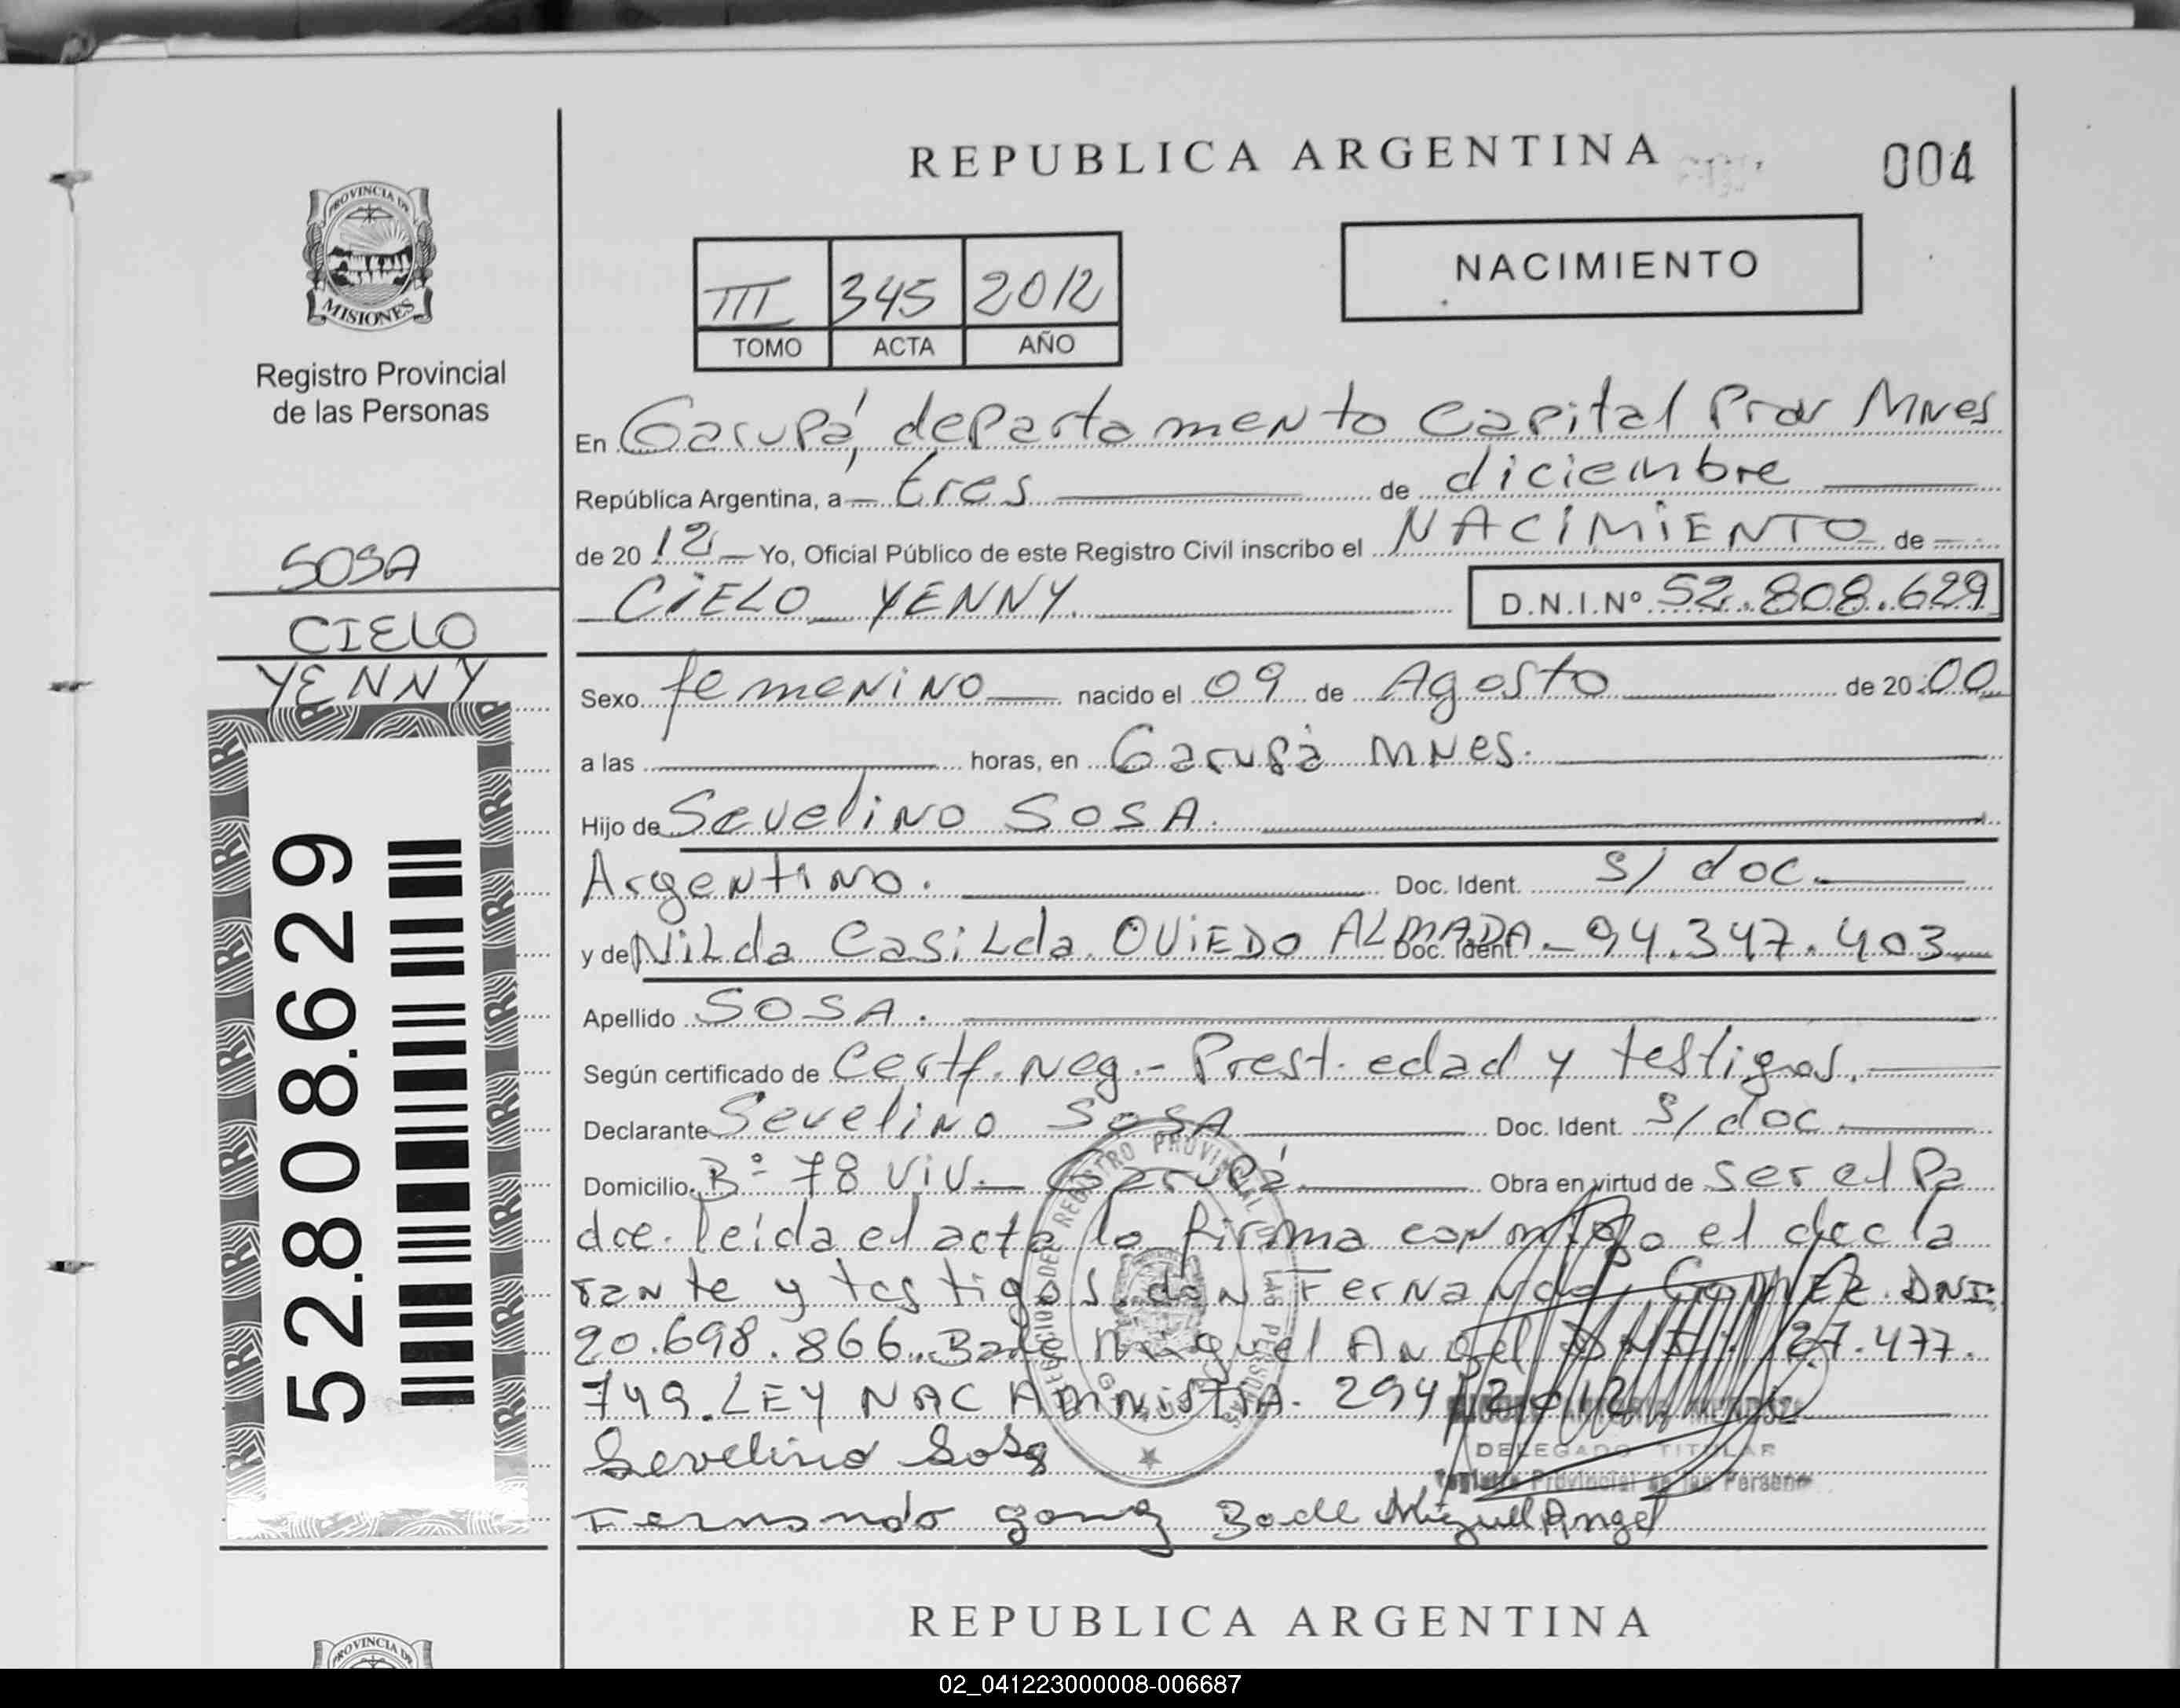 REPUBLICA ARGENTINA
004
PROVINCIA DE
MISIONES
Registro Provincial
de las Personas
III 345 2012
TOMO ACTA AÑO
NACIMIENTO
En Garupá, departamento Capital Prov Mnes
República Argentina, a tres de diciembre
de 20 12 Yo, Oficial Público de este Registro Civil inscribo el NACIMIENTO de
CIELO YENNY.
D.N.I.Nº 52.808.629
SOSA
CIELO
YENNY
52.808.629
Sexo femenino nacido el 09 de Agosto de 20 00
a las horas, en Garupá MNes.
Hijo de Sevelino SOSA.
Argentino. Doc. Ident. s/doc.
y de Nilda Casilda OVIEDO ALMADA Doc. Ident. - 94.347.403
Apellido SOSA.
Según certificado de Certf. Neg.- Prest. edad y testigos.
Declarante Sevelino SOSA Doc. Ident. S/doc
Domicilio Bº 78 viv. Garupá. Obra en virtud de ser el Pa
dre. leida el acta la firma conmigo el decla
rante y testigos don Fernando GOMEZ DNI
20.698.866. Bade Miguel Angel DNI: 27.477.
749. LEY NAC AMNISTIA. 294/2012
DELEGADO TITULAR
Registro Provincial de las Personas
Sevelino Sosa
Fernando gomez Bade Miguel Angel
REPUBLICA ARGENTINA
PROVINCIA DE
02_041223000008-006687